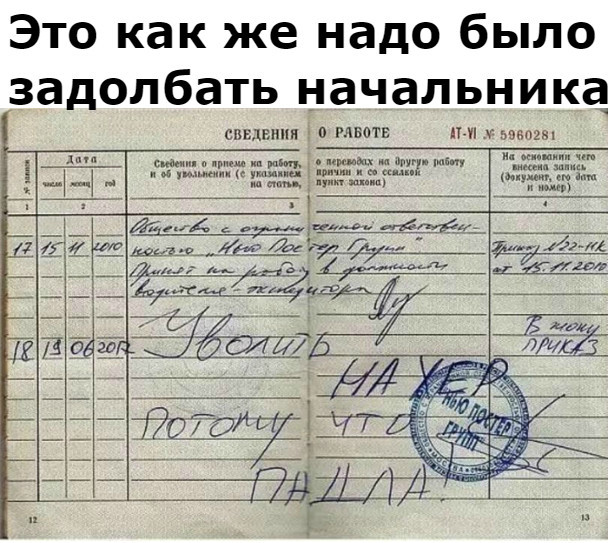 Это как же надо было
задолбать начальника
СВЕДЕНИЯ О РАБОТЕ АТ-VI № 5960281
№ записи
Дата
число месяц год
Сведения о приеме на работу, о переводах на другую работу
и об увольнении (с указанием причин и со ссылкой
на статью, пункт закона)
На основании чего
внесена запись
(документ, его дата
и номер)
1 2 3 4
Общество с ограниченной ответствен-
ностью „Нью Постер Групп"
17 15 11 2010 Принят на работу в должности
водителя-экспедитора
Приказ №22-НК
от 15.11.2010
18 19 06 2017 Уволить
НАХЕР
ПОТОМУ ЧТО
ПАДЛА!
В жопу
ПРИКАЗ
НЬЮ ПОСТЕР
ГРУПП
12 13